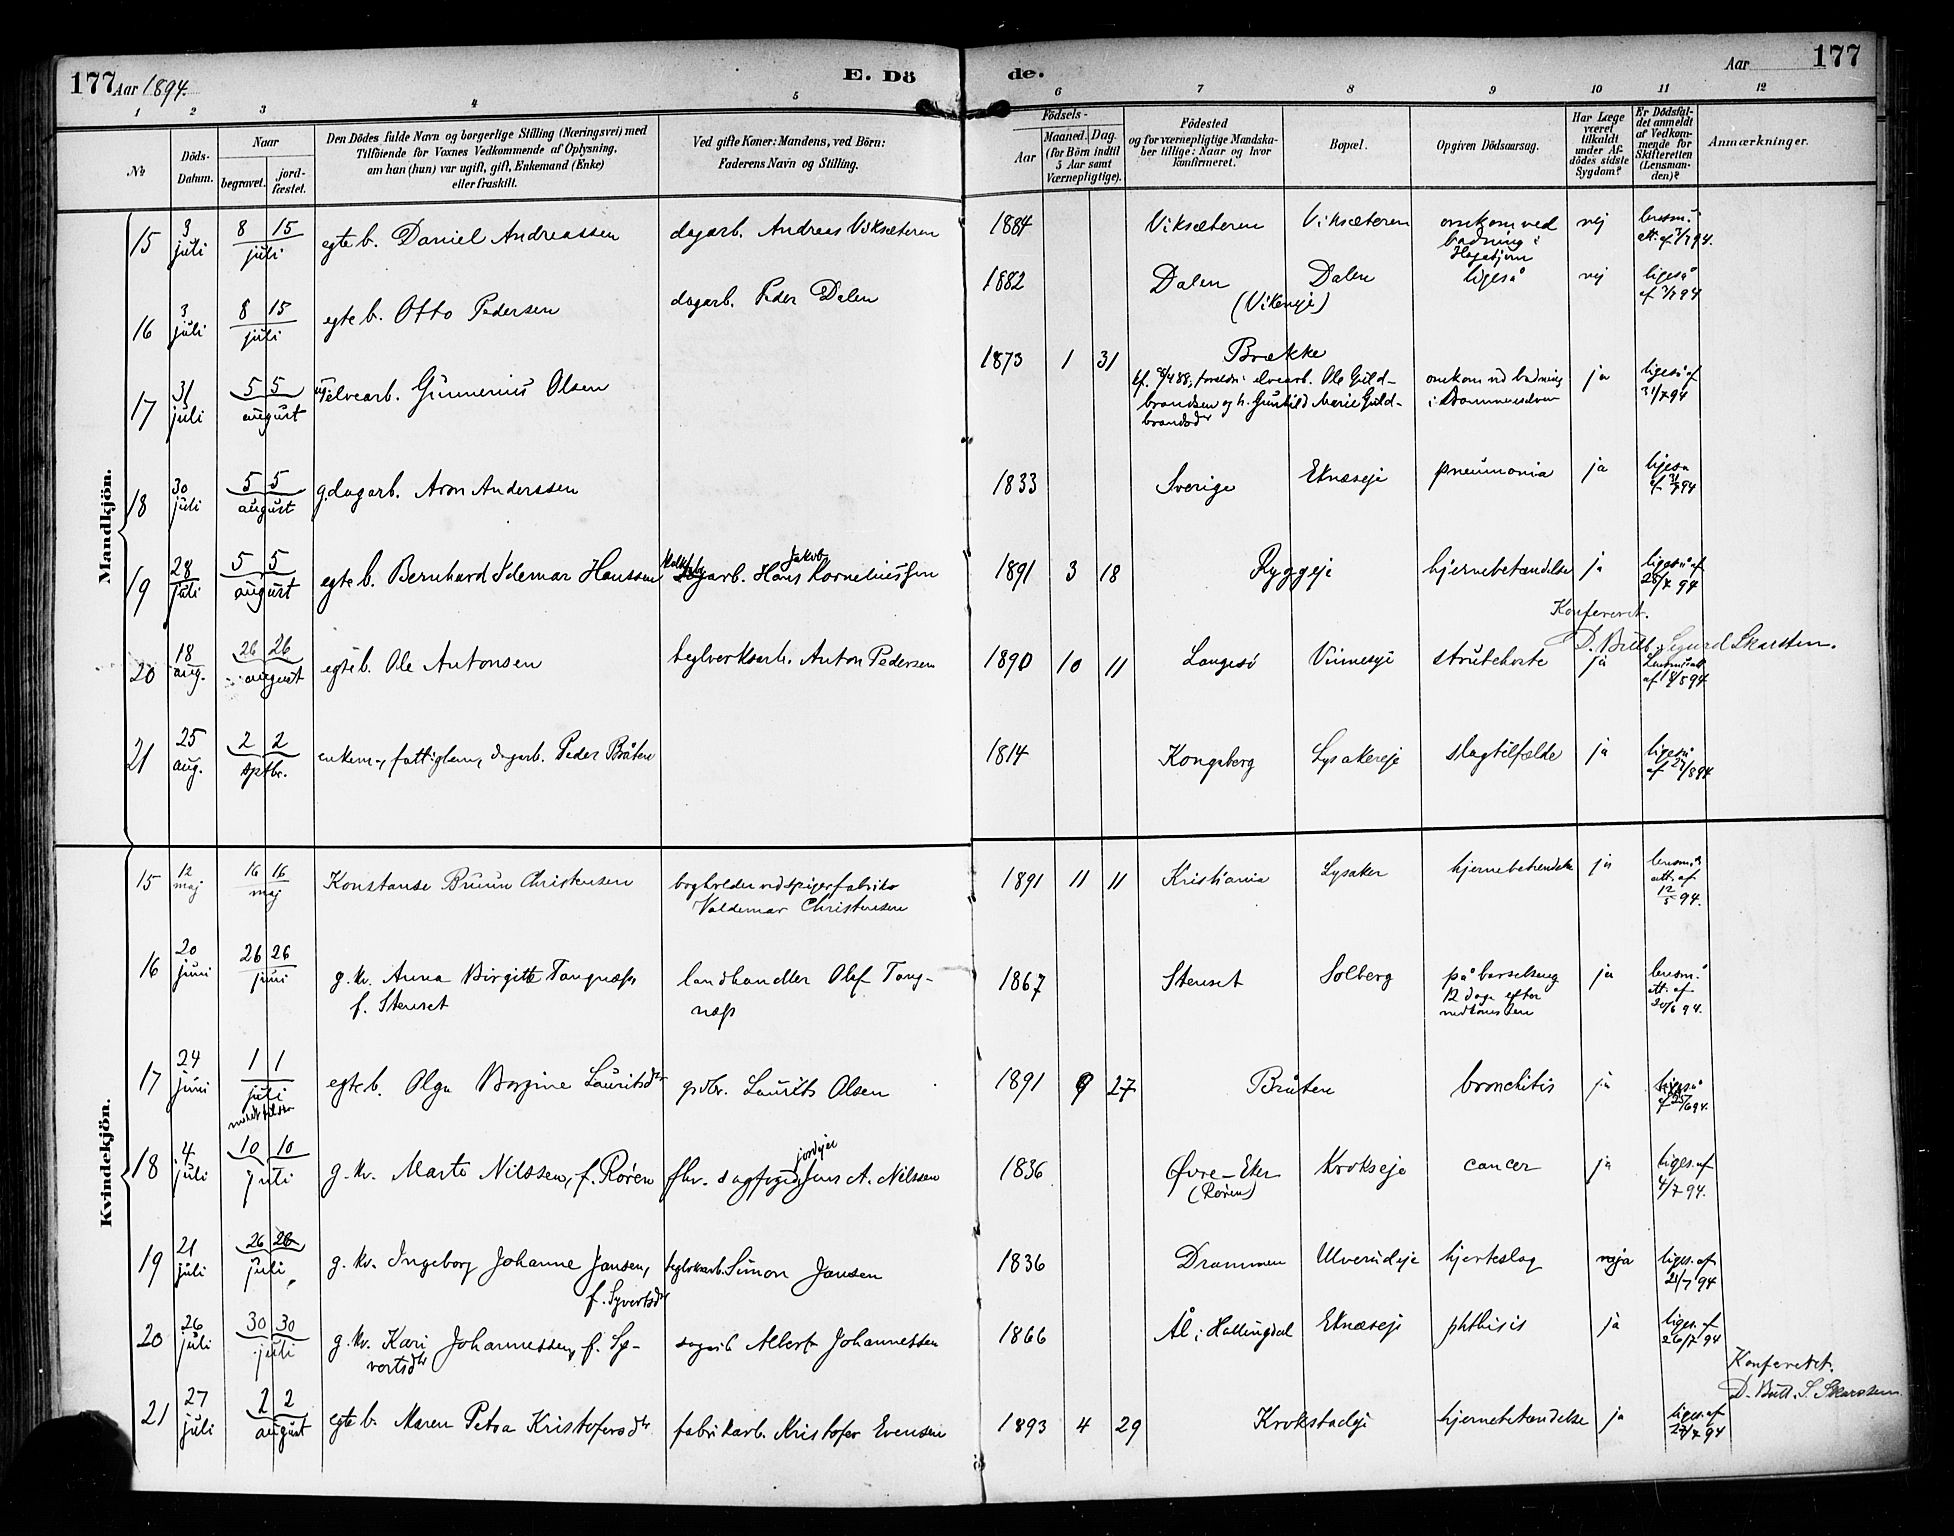 177 Aar 1894. E. Dö de. Aar 177
1 2 3 4 5 6 7 8 9 10 11 12
No
Döds-Datum.
Naar
begravet.
jord-fæstet.
Den Dödes fulde Navn og borgerlige Stilling (Næringsvei) med
Tilföiende for Voxnes Vedkommende af Oplysning,
om han (hun) var ugift, gift, Enkemand (Enke)
eller fraskilt.
Ved gifte Koner: Mandens, ved Börn:
Faderens Navn og Stilling.
Födsels-
Aar
Maaned. Dag.
(for Börn indtil
5 Aar samt
Værnepligtige).
Födested
og for værnepligtige Mandska-
ber tillige: Naar og hvor
konfirmeret.
Bopæl.
Opgiven Dödsaarsag.
Har Læge
været
tilkaldt
under Af-
dödes sidste
Sygdom?
Er Dödsfal-
det anmeldt
af Vedkom-
mende for
Skifteretten
(Lensman-
den)?
Anmærkninger.
Mandkjön.
15 3 juli 8 15 juli egte b. Daniel Andreassen dagarb. Andreas Viksæteren 1884 Viksæteren Viksæteren omkom ved nej lensm.
badning i att. af 3/7 94.
16 3 juli 8 15 juli egte b. Otto Pedersen dagarb. Peder Dalen 1882 Dalen Dalen ligeså nej ligeså
(Vikeneje) af 3/7 94
17 31 juli 5 5 august elvearb. Gunnerius Olsen 1873 1 31 Brække omkom ved badning ja ligeså af
foreldre: elvearb. Ole Guld-
brandsen og h. Gunhild Marie Guld- 31/7 94
brandsdr
18 30 juli 5 5 august g. dagarb. Aron Anderssen 1833 Sverige Eknæseje pneumonia ja ligeså
af 31/7 94
19 28 juli 5 5 august egte b. Bernhard Idemar Hanssen Hans Jakob Korneliussen 1891 3 18 Ryggeje hjernebetændelse ja ligeså af
28/7 94
Konfereret.
D. Butt. Sigurd Skarsten.
20 18 aug. 26 26 august egte b. Ole Antonsen teglverksarb. Anton Pedersen 1890 10 11 Langesö Vinneseje strubehoste ja
21 25 aug. 2 2 sptbr. enkem., fattiglem, dagarb. Peder Bråten 1814 Kongsberg Lysakereje slagtilfælde ja ligeså
af 27/8 94
Kvindekjön.
15 12 maj 16 16 maj Konstanse Bruun Christensen bogholder ved spigerfabrik 1891 11 11 Kristiania Lysaker hjernebetændelse ja lensm.s
Valdemar Christensen att. af
12/5 94.
16 20 juni 26 26 juni g. kv. Anna Birgitte Tangnæss, landhandler Olaf Tang- 1867 Stenset Solberg på barselseng ja lensm.
f. Stenset næss 12 dage efter att. af
nedkomsten 20/6 94.
17 24 juni 1 1 juli egte b. Olga Borgine Lauritsdr gbr. Laurits Olsen 1891 9 27 Bråten bronchitis ja ligeså
af 25/6 94.
18 4 juli 10 10 juli g. kv. Marte Nilssen, f. Rören Jens A. Nilssen 1836 Øvre-Eker Krokseje cancer ja liges. af
(Rören) 4/7 94.
19 21 juli 26 26 juli g. kv. Ingeborg Johanne Jansen, teglverksarb. Simon Jansen 1836 Drammen Ulverudeje hjerteslag ja liges. af
f. Syvertsdr 21/7 94
20 26 juli 30 30 juli g. kv. Kari Johannessen, f. Sy- Albert Johannessen 1866 Ål i Hallingdal Eknæseje phthisis ja liges. af
vertsdtr 26/7 94
Konfereret.
D. Butt. S. Skarsten
21 27 juli 2 2 august egte b. Maren Petra Kristofersdtr fabrikarb. Kristofer Evensen 1893 4 29 Krokstadeje hjernebetændelse ja liges. af
27/7 94